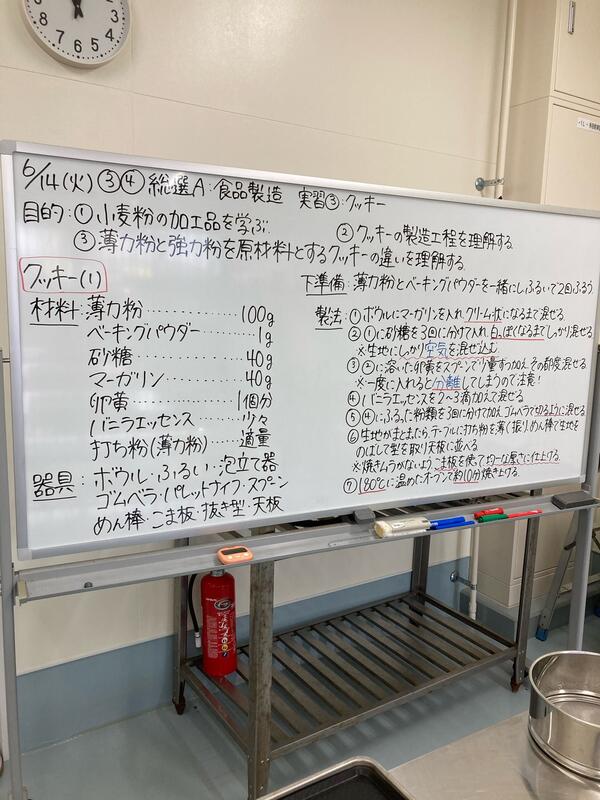 6/14(火) ③④ 総選A:食品製造 実習③:クッキー
目的:①小麦粉の加工品を学ぶ ②クッキーの製造工程を理解する
③薄力粉と強力粉を原材料とするクッキーの違いを理解する
クッキー(1)
材料:薄力粉 ・・・・・・・・ 100g
ベーキングパウダー ・・・・ 1g
砂糖 ・・・・・・・・ 40g
マーガリン ・・・・・・・ 40g
卵黄 ・・・・・・・・ 1個分
バニラエッセンス ・・・・・ 少々
打ち粉(薄力粉) ・・・・・ 適量
器具:ボウル・ふるい・泡立て器
ゴムベラ・パレットナイフ・スプーン
めん棒・こま板・抜き型・天板
下準備:薄力粉とベーキングパウダーを一緒にしふるいで2回ふるう
製法:①ボウルにマーガリンを入れ、クリーム状になるまで混ぜる
②①に砂糖を3回に分けて入れ、白っぽくなるまでしっかり混ぜる
※生地にしっかり空気を混ぜ込む
③②に溶いた卵黄をスプーンで少量ずつ加え、その都度混ぜる
※一度に入れると分離してしまうので注意!
④バニラエッセンスを2~3滴加えて混ぜる
⑤④にふるった粉類を3回に分けて加え、ゴムベラで切るように混ぜる
⑥生地がまとまったらテーブルに打ち粉を薄く振り、めん棒で生地を
のばして型を取り天板に並べる
※焼きムラがないよう、こま板を使って均一な厚さに仕上げる
⑦180℃に温めたオーブンで約10分焼き上げる